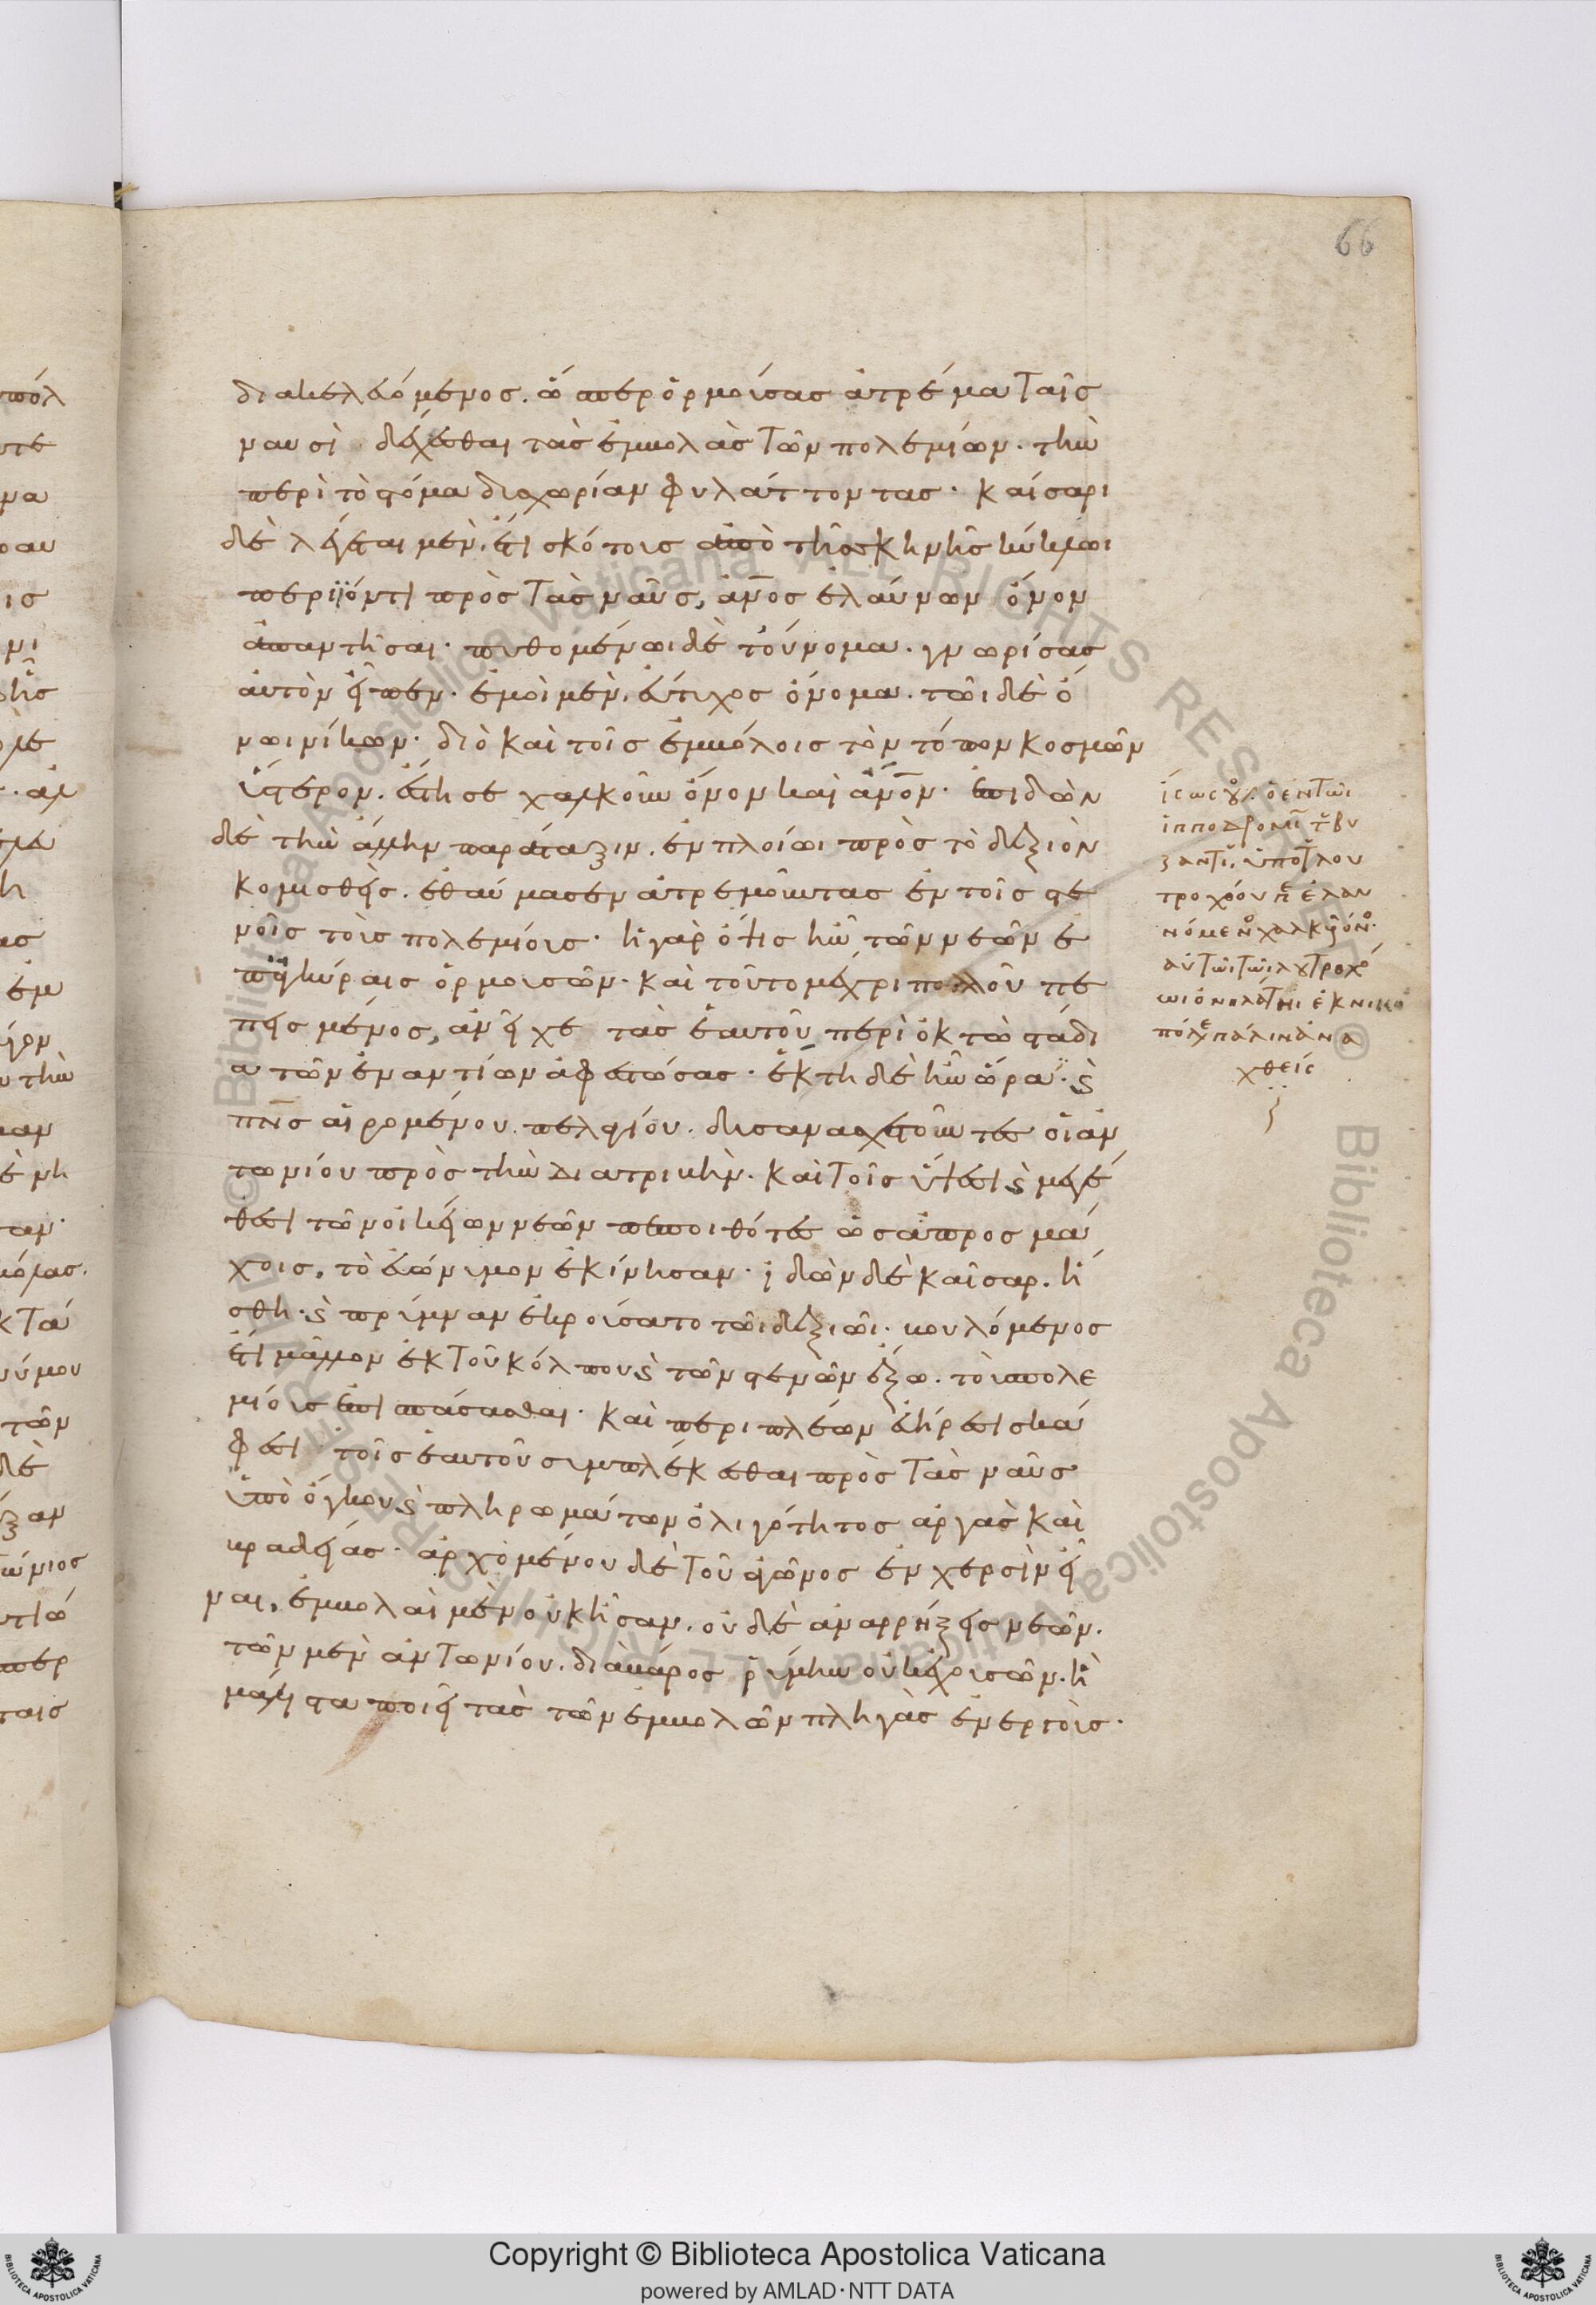 διακελευόμενος. ὥσπερ ὁρμούσας ἀτρέμα ταῖς
ναυσὶ δέχεσθαι τὰς ἐμβολὰς τῶν πολεμίων. τὴν
περὶ τὸ στόμα δυσχωρίαν φυλάττοντας. Καίσαρι
δὲ λέγεται μὲν. ἔτι σκότους ἀπὸ τῆς σκηνῆς κύκλωι
περιϊόντι πρὸς τὰς ναῦς, ἄνος ἐλαύνων ὄνον
ἀπαντῆσαι. πυθομένωι δὲ τοὔνομα. γνωρίσας
αὐτὸν εἶπεν. ἐμοὶ μὲν. εὔτυχος ὄνομα. τῶι δὲ ὄ
νωι νίκων. διὸ καὶ τοῖς ἐμβόλοις τὸν τόπον κοσμῶν
ὕστερον. ἔστησε χαλκοῦν ὄνον καὶ ἄνον. ἐπιδὼν
δὲ τὴν ἄλλην παράταξιν. ἐν πλοίωι πρὸς τὸ δεξιὸν
κομισθεὶς. ἐθαύμασεν ἀτρεμοῦντας ἐν τοῖς στε
νοῖς τοὺς πολεμίους. ἡ γὰρ ὄψις ἦν τῶν νεῶν ἐ
π' ἀγκύραις ὁρμουσῶν. καὶ τοῦτο μέχρι πολλοῦ πε
πεισμένος, ἀνεῖχε τὰς ἑαυτοῦ περὶ ὀκτὼ στάδι
α τῶν ἐναντίων ἀφεστώσας. ἕκτη δὲ ἦν ὥρα. ϗ
πνς αἰρομένου πελαγίου. δυσανασχετοῦντες οἱ ἀν
τωνίου πρὸς τὴν διατριβὴν. καὶ τοῖς ὕψεσι ϗ μεγέ
θεσι τῶν οἰκείων νεῶν πεποιθότες ὡς ἀπροσμά
χοις, τὸ εὐώνυμον ἐκίνησαν. ἰδὼν δὲ καῖσαρ. ἥ
σθη. ϗ πρύμναν ἐκρούσατο τῶι δεξιῶι. βουλόμενος
ἔτι μᾶλλον ἐκ τοῦ κόλπου ϗ τῶν στενῶν ἔξω. τοὺς πολε
μίους ἐπισπάσασθαι. καὶ περιπλέων εὐήρεσι σκά
φεσι τοῖς ἑαυτοῦ συμπλέκεσθαι πρὸς τὰς ναῦς
ὑπὸ ὄγκου ϗ πληρωμάτων ὀλιγότητος ἀργὰς καὶ
βραδείας. ἀρχομένου δὲ τοῦ ἀγῶνος ἐν χερσὶν εἶ
ναι, ἐμβολαὶ μὲν οὐκ ἦσαν. οὐδὲ ἀναρρήξεις νεῶν.
τῶν μὲν ἀντωνίου. διὰ βάρος ῥύμην οὐκ ἐχουσῶν. ἣ
μάλιστα ποιεῖ τὰς τῶν ἐμβολῶν πληγὰς ἐνεργοὺς.
ὁ ἐν τῶι
ἱπποδρομίωι τοῦ βυ
ζαντίου. ὑπὸ τοῦ λου
τροχόου
αὐτῶι τῶι λουτροχό
ωι ὀνηλάτηι ἐκ νικο
πόλεως πάλιν ἀνα
χθείς
66